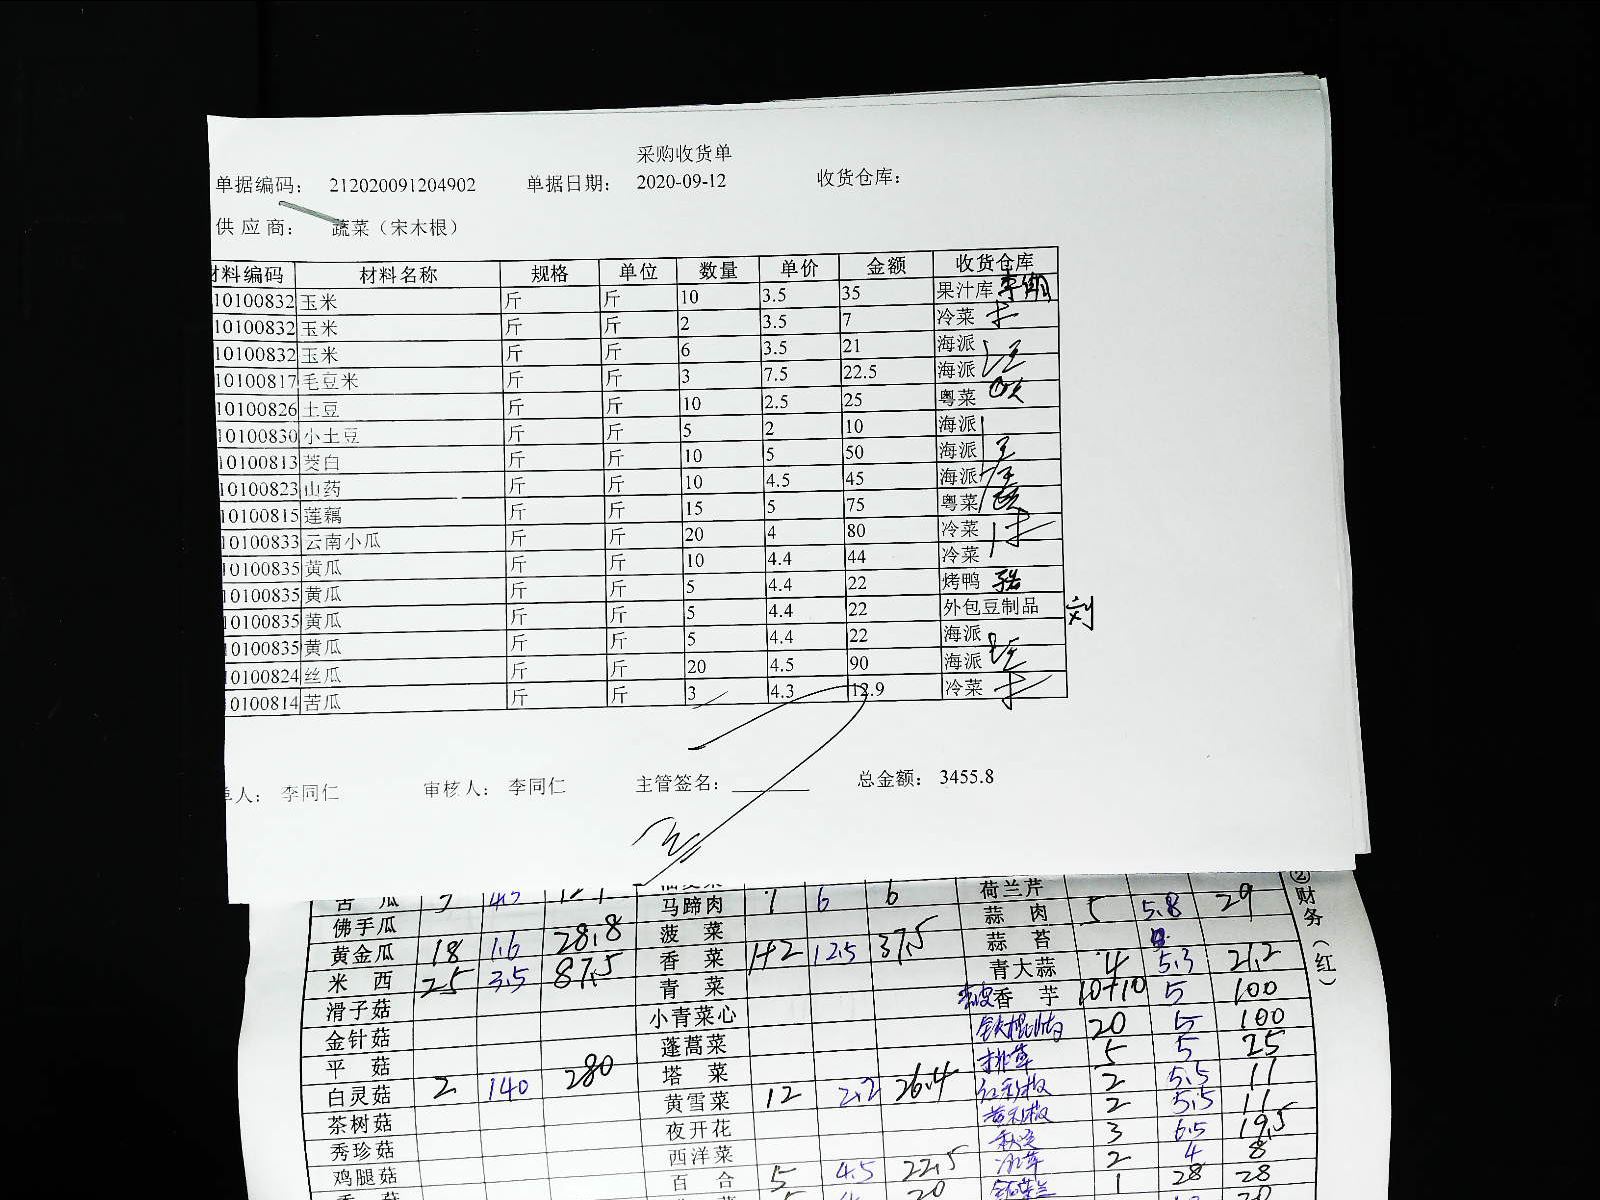 采购收货单
单据编码： 212020091204902 单据日期： 2020-09-12 收货仓库：
供应商： 蔬菜（宋木根）
材料编码 材料名称 规格 单位 数量 单价 金额 收货仓库
10100832 玉米 斤 斤 10 3.5 35 果汁库
10100832 玉米 斤 斤 2 3.5 7 冷菜
10100832 玉米 斤 斤 6 3.5 21 海派
10100817 毛豆米 斤 斤 3 7.5 22.5 海派
10100826 土豆 斤 斤 10 2.5 25 粤菜
10100830 小土豆 斤 斤 5 2 10 海派
10100813 茭白 斤 斤 10 5 50 海派
10100823 山药 斤 斤 10 4.5 45 海派
10100815 莲藕 斤 斤 15 5 75 粤菜
10100833 云南小瓜 斤 斤 20 4 80 冷菜
10100835 黄瓜 斤 斤 10 4.4 44 冷菜
10100835 黄瓜 斤 斤 5 4.4 22 烤鸭
10100835 黄瓜 斤 斤 5 4.4 22 外包豆制品 刘
10100835 黄瓜 斤 斤 5 4.4 22 海派
10100824 丝瓜 斤 斤 20 4.5 90 海派
10100814 苦瓜 斤 斤 3 4.3 12.9 冷菜
单人： 李同仁 审核人： 李同仁 主管签名： 总金额： 3455.8
苦瓜 荷兰芹 ②财务（红）
佛手瓜 马蹄肉 1 6 6 蒜肉 5 5.8 29
黄金瓜 18 1.6 28.8 菠菜 蒜苔
米西 25 3.5 87.5 香菜 1+2 12.5 37.5 青大蒜 4 5.3 21.2
滑子菇 青菜 香芋 10+10 5 100
金针菇 小青菜心 20 5 100
平菇 蓬蒿菜 5 5 25
白灵菇 2 140 280 塔菜 2 5.5 11
茶树菇 黄雪菜 12 2.2 26.4 2 5.5 11
秀珍菇 夜开花 3 6.5 19.5
鸡腿菇 西洋菜 2 4 8
百合 5 4.5 22.5 1 28 28
20